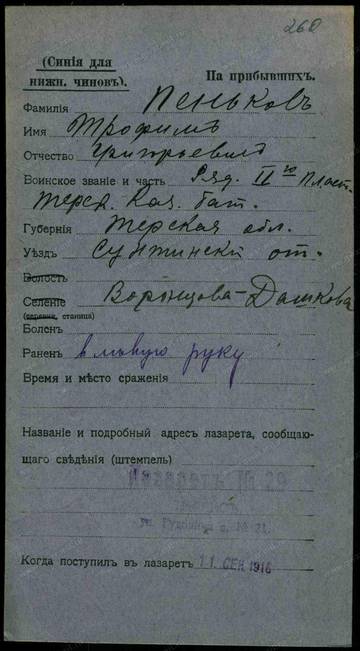 260
(Синія для
нижн. чиновъ).
На прибывшихъ.
Фамилія Пеньковъ
Имя Трофимъ
Отчество Григорьевичъ
Воинское званіе и часть Ряд. II го Пласт.
Терск. Каз. бат.
Губернія Терская обл.
Уѣздъ Сунжинскій от.
Волость
Селеніе Воронцова-Дашкова
(деревня, станица)
Боленъ
Раненъ в лѣвую руку
Время и мѣсто сраженія
Названіе и подробный адресъ лазарета, сообщаю-
щаго свѣдѣнія (штемпель)
№ 29
ул. № 21.
Когда поступилъ въ лазаретъ 11 СЕН 1916